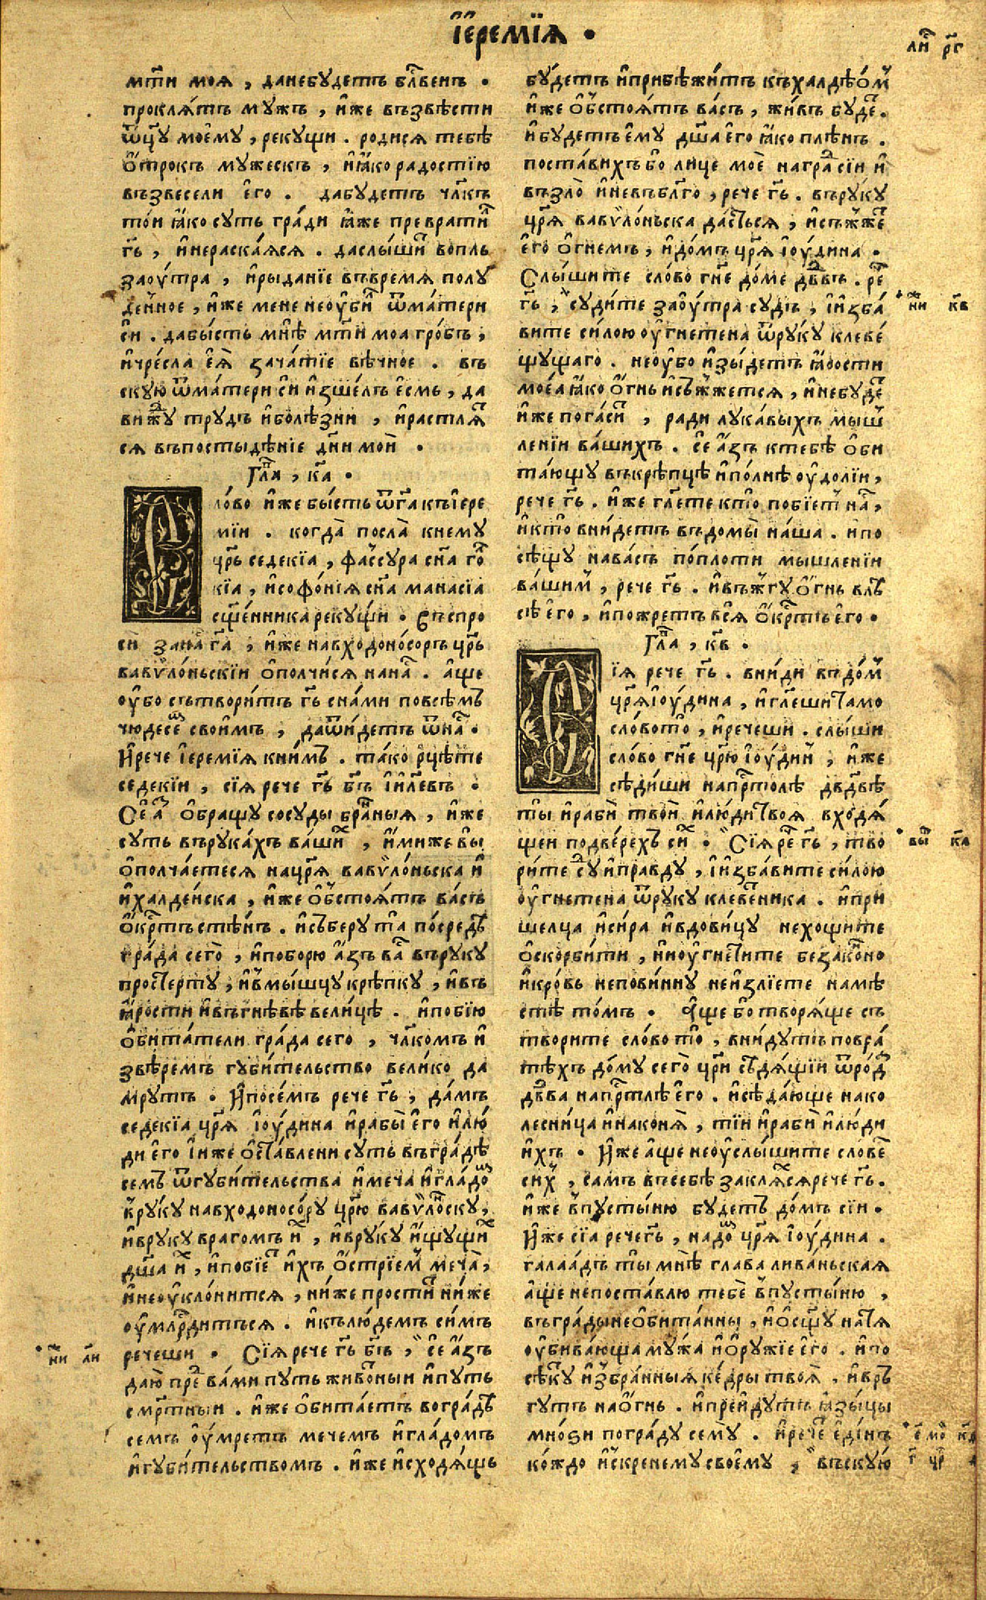 І҆еремїѧ ·
ли рг
мт҃и моѧ , данебудетъ бл҃венъ ·
проклѧтъ мужъ , и҆же възвѣсти
ѿц҃у моему , рекущи . родисѧ тебѣ
ѻ҆трокъ мужескъ , и҆ꙗко радостїю
възвесели е҆го . дабудетъ чл҃къ
тои ꙗко суть гради ꙗже преврати
гь҃ , и҆нераскаѧсѧ . даслышит вопль
заоутра , и҆рыданїе въвремѧ полу
денное , и҆же мене неоуби ѿматери
си . дабысть мнѣ мт҃и моа гробъ ,
и҆чресла еѧ зачатїе вѣчное . въ
скую ѿматери си и҆зшелъ есмь , да
вижу трудъ и҆болѣзни , и҆растлѧ
сѧ въпостыдѣнїе дн҃и мои ·
Гла , ка ·
лово и҆же бысть ѿга къі҆ере
мїи . когда посла кнему
цр҃ь седекїа , фассура сн҃а го
кїа , и҆софонїѧ сн҃а манасїа
сщ҃енника рекущи · Въспро
си занаⷭ га , и҆же навходоносоръ цр҃ь
вавѷлоньскїи ѻ҆полчисѧ нанаⷭ . а҆ще
оубо сътворитъ гь҃ снами повсемъ
чюдесеⷨ своимъ , даѿидетъ ѿнаⷭ ·
И҆рече і҆еремїѧ книмъ . тако рцѣте
седекїи , сїѧ рече гь҃ бг҃ъ і҆и҃левъ ·
Се аⷥ ѻ҆бращу сосуды бранныѧ , и҆же
суть въруках вашиⷯ , и҆миже вы
ѻ҆полчаетесѧ нацр҃ѧ вавѷлоньска и҆
и҆халдейска , и҆же ѻ҆бстоѧтъ васъ
ѻ҆крⷭтъ стѣнъ . и҆съберу та посредѣ
града сего , и҆поборю а҆зъ ваⷭ въруку
простерту , и҆вмышцу крѣпку , и҆въ
ꙗрости и҆въгнѣвѣ велицѣ . и҆побїю
ѻ҆битатели града сего , чл҃комъ и҆
звѣремъ губительство велико да
мрутъ · И҆посемъ рече гь҃ , дамъ
седекїа цр҃ѧ іоудина и҆рабы его и҆лю
ди его и҆иже ѻ҆ставлени суть въградѣ
семъ ѿгубительства и҆меча и҆гладоⷨ
вруку навходоносору цр҃ю вавѷлоⷩску ,
и҆вруку врагомъ иⷯ , и҆вруку и҆щущиⷯ
дш҃а иⷯ , и҆побїеⷮ и҆хъ ѻ҆стрїемъ меча ,
и҆неоуклонитсѧ , ниже простиⷮ ниже
оумлⷭрдитьсѧ . и҆кълюдемъ симъ
речеши · Сїѧ рече гь҃ бг҃ъ , се а҆зъ
даю преⷣ вами путь животныи и҆путь
смрⷮтныи . и҆же ѻ҆битаетъ воградѣ
семъ оумретъ мечемъ и҆гладомъ
и҆губительствомъ . и҆же и҆сходѧщь
нїи ли
будетъ и҆прибѣжитъ къхалдѣѻмъ
и҆же ѻ҆бстоѧтъ васъ , живъ будеⷮ .
и҆будетъ ему дш҃а его ꙗко плѣнъ .
поставихъ бо лице мое награⷣ сїи и҆
възло и҆невъблг҃о , рече гь҃ . въруку
цр҃ѧ вавѷлоньска дастьсѧ , и҆съжжеⷮ
его ѻ҆гнемъ , и҆домъ цр҃ѧ і҆оудина ·
Слышите слово гн҃е доме двⷣвъ . реⷱ
гь҃ , судите заоутра судъ , и҆и҆зба
вите силою оугнетена ѿруку клеве
щущаго . неоубо и҆зыдетъ ꙗрости
моеа ꙗко ѻ҆гнь и҆съжжетсѧ , и҆небудеⷮ
и҆же погасиⷮ , ради лукавыхъ мыш
ленїи вашихъ . се а҆зъ ктебѣ ѻ҆би
тающу въкрѣпцѣ и҆полнѣ оудолїи ,
рече гь҃ . и҆же гл҃ете кто побїетъ наⷭ ,
и҆кто внидетъ въдомы наша . и҆по
сѣщу навасъ поплоти мышленїи
вашимъ , рече гь҃ . и҆въжгу ѻ҆гнь влѣ
сѣ его , и҆пожретъ всѧ ѻ҆крⷭтъ его ·
Гла , кв ·
їѧ рече гь҃ . вниди вдомъ
цр҃ѧ і҆оудина , и҆гл҃еши тамо
слово то , и҆речеши . слыши
слово гн҃е цр҃ю і҆оудинъ , и҆же
сѣдиши напрⷭтолѣ двдвѣ
ты и҆раби твои и҆люди твоѧ входѧ
щеи подверехъ сиⷯ · Сїѧ реⷱ гь҃ , тво
рите суⷣ и҆правду , і҆и҆збавите силою
оугнетена ѿруку клевеника . и҆при
шелца и҆сира и҆вдовицу нехощите
ѻ҆скорбити , и҆неоугнетите безаконно
и҆кровь неповинну неизлїете намѣ
стѣ томъ · А҆ще бо творѧще съ
творите слово то , внидутъ повра
тѣхъ дому сего цр҃и сѣдѧщїи ѿродъ
двⷣва напрⷭтлѣ его . и҆сѣдающе нако
лесница и҆наконѧ , тїи и҆раби и҆люди
и҆хъ · И҆же а҆ще неоуслышите словеⷭ
сиⷯ , самъ всебѣ заклѧхсѧ рече гь҃ .
и҆же впустыню будетъ домъ сїи ·
И҆же сїа рече гь҃ , надоⷨ цр҃ѧ і҆оудина .
галаадъ ты мнѣ глава ливаньскаѧ
а҆ще непоставлю тебе впустыню ,
въграды необитанны , и҆ѻсщу натѧ
оубивающа мужа и҆ѻружїе его . и҆по
сѣку и҆збранныѧ кедры твоѧ , и҆връ
гутъ наѻгнь . и҆преидутъ ꙗзыцы
мнози пограду сему . и҆речеⷮ единъ
кождо и҆скренему своему , въскую
нїи кв
вы ка
г цр